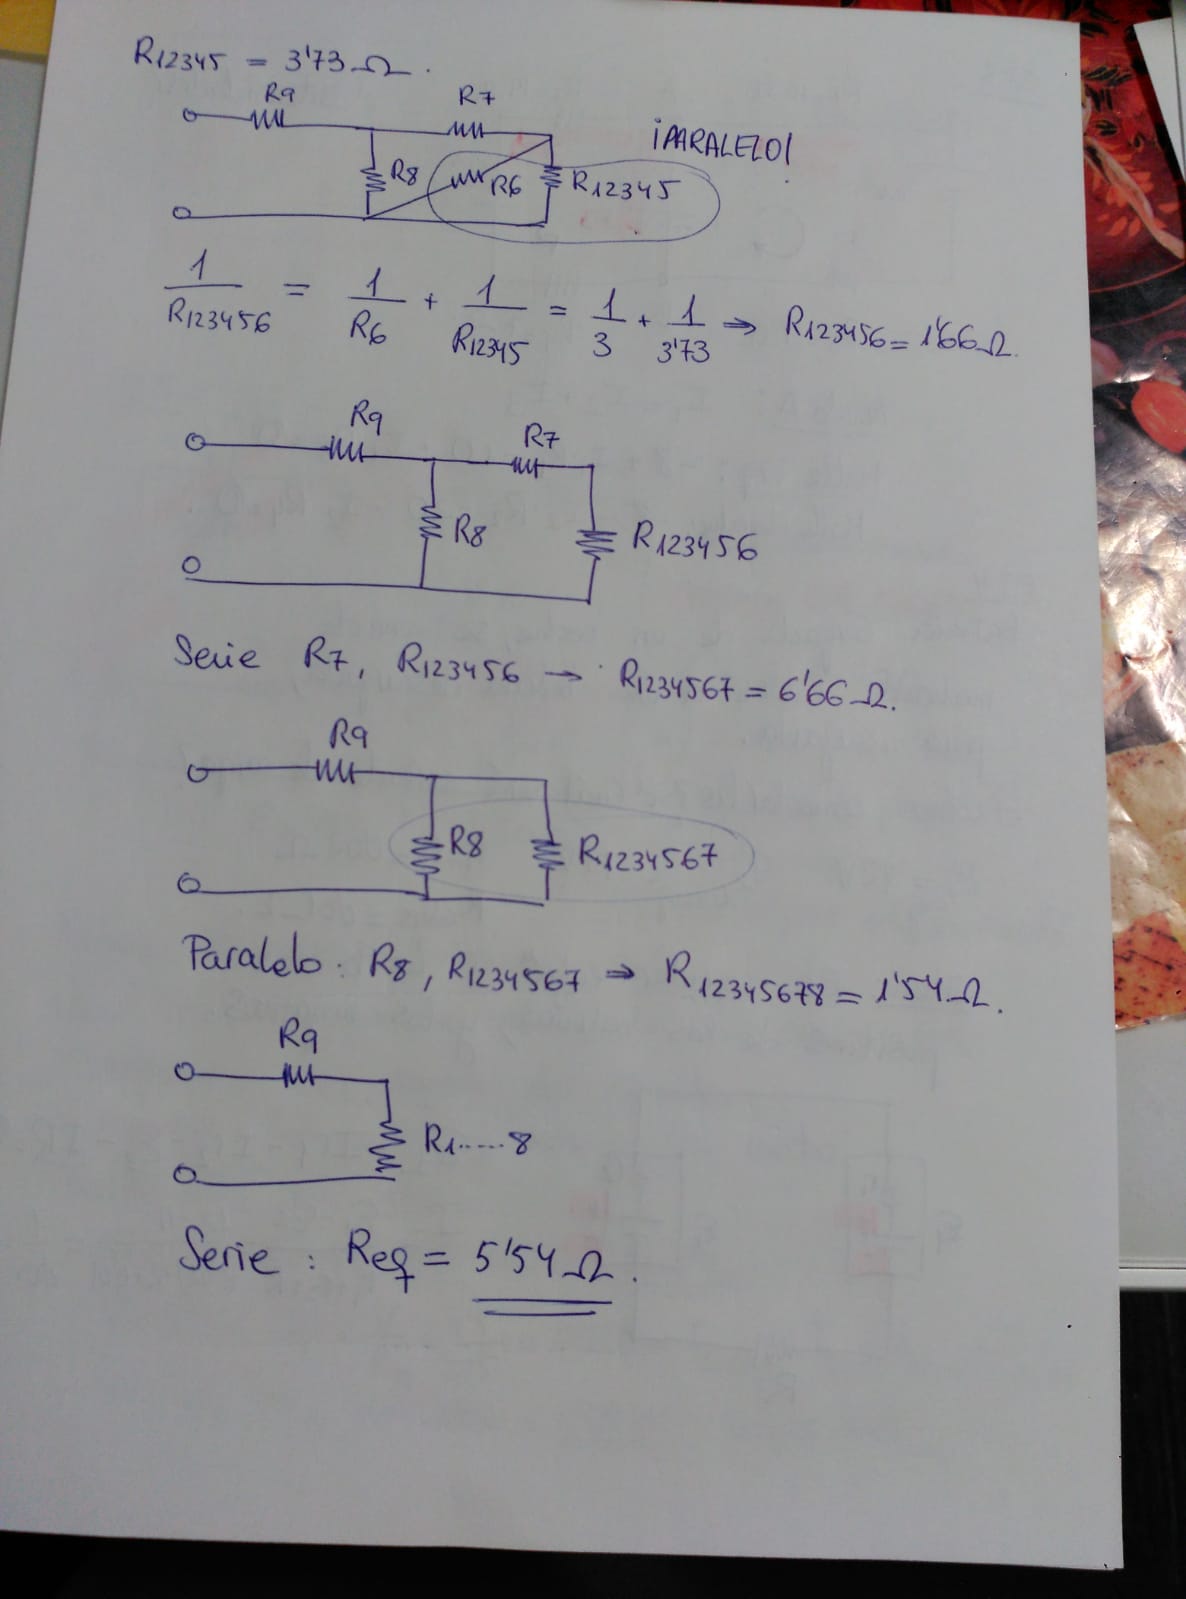 R12345 = 3'73Ω.
R9 R7
¡PARALELO!
R8 R6 R12345
1/R123456 = 1/R6 + 1/R12345 = 1/3 + 1/3'73 ⇒ R123456 = 1'66Ω.
R9
R7
R8 R123456
Serie R7, R123456 → R1234567 = 6'66Ω.
R9
R8 R1234567
Paralelo: R8, R1234567 ⇒ R12345678 = 1'54Ω.
R9
R1.....8
Serie: Req = 5'54Ω.